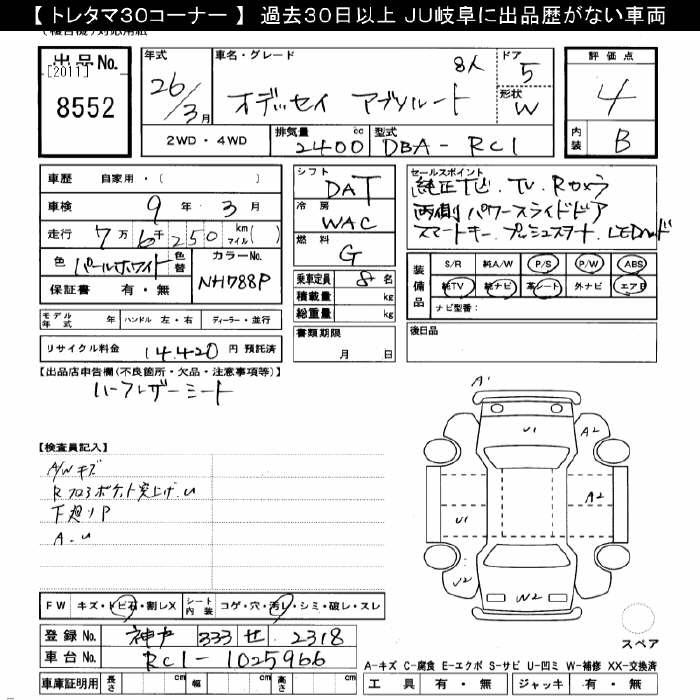 【 トレタマ30コーナー 】 過去30日以上 JU岐阜に出品歴がない車両
出品No.
[2011]
8552
年式
26/3月
車名・グレード
8人
オデッセイ アブソルート
ドア 5
形状 W
2WD・4WD
排気量 2400 cc
型式 DBA-RC1
評価点
4
内装 B
車歴 自家用・( )
車検 9年 3月
走行 7万6千250 km マイル( )
色 パールホワイト 色替
カラーNo. NH788P
保証書 有・無
モデル年式 年 ハンドル 左・右 ディーラー・並行
リサイクル料金 14,420 円 預託済
シフト DAT
冷房 WAC
燃料 G
乗車定員 8 名
積載量 kg
総重量 kg
書類期限
月 日
セールスポイント
純正ナビ. TV. Rカメラ
両側パワースライドドア
スマートキー. プッシュスタート. LED
装備品
S/R 純A/W P/S P/W ABS
純TV 純ナビ 革シート 外ナビ エアB
ナビ型番:
後日品
【出品店申告欄(不良箇所・欠品・注意事項等)】
ハーフレザーシート
【検査員記入】
A/Wキズ
R フロアポケット突上げ.U
下廻りP
A.U
FW キズ・トビ石・割レX
シート内装 コゲ・穴・汚レ・シミ・破レ・スレ
登録No. 神戸 333 せ 2318
車台No. RC1-1025966
車庫証明用 長さ cm 幅 cm 高さ cm
A1
U1
A2
A2
U1
U2
W2
スペア
A-キズ C-腐食 E-エクボ S-サビ U-凹ミ W-補修 XX-交換済
工具 有・無 ジャッキ 有・無